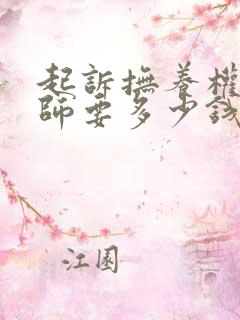 起訴撫養權
師要多少錢
江園